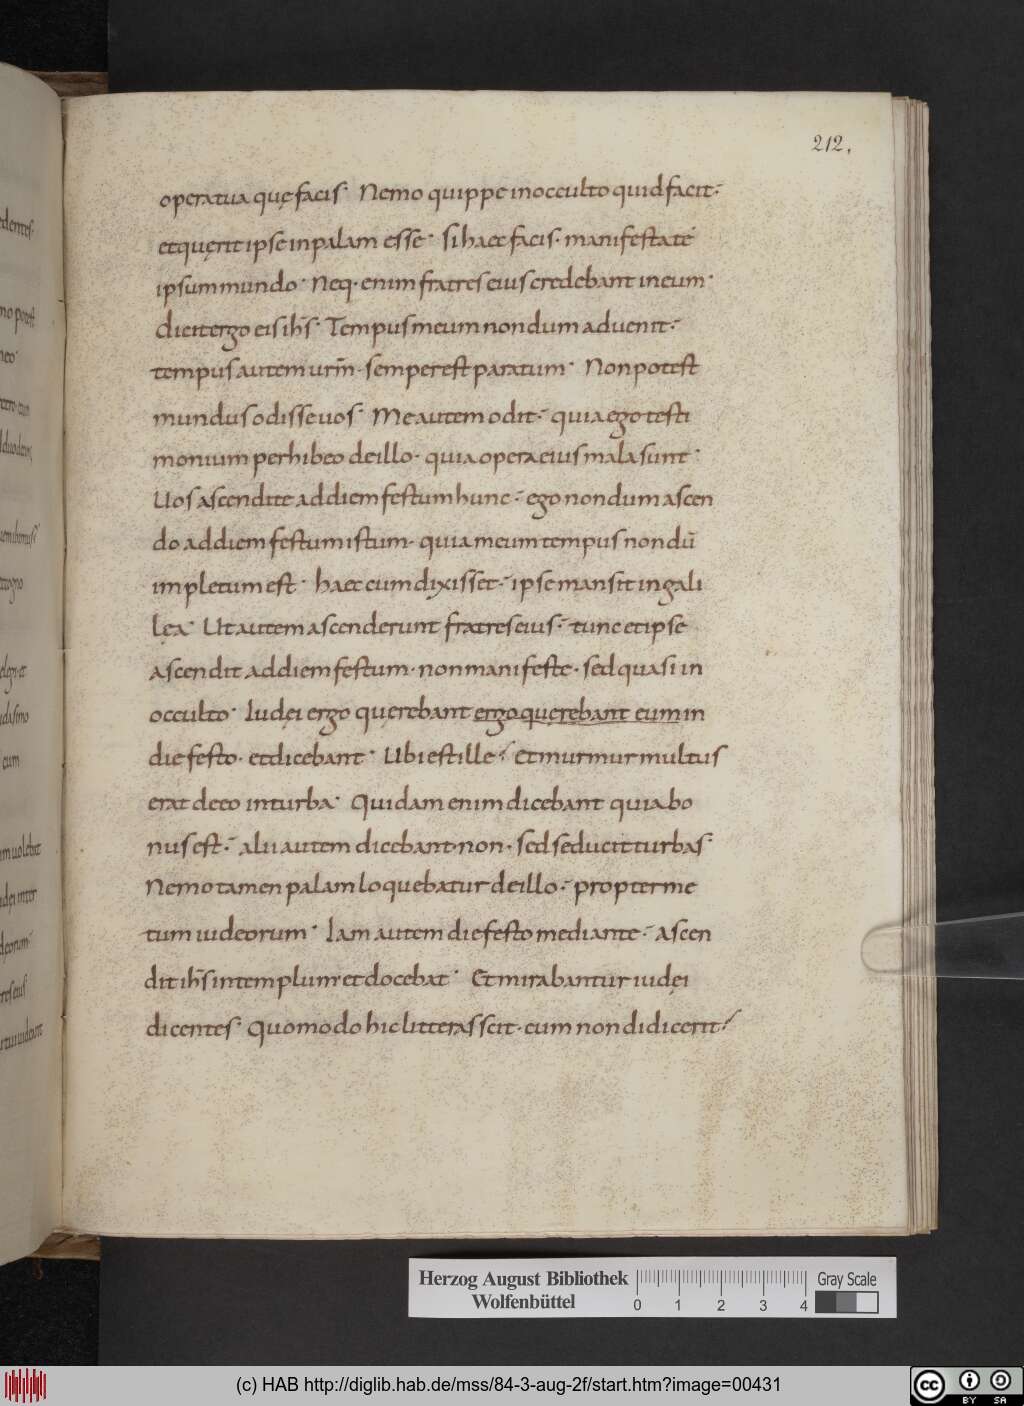 212,
opera tua quę facis· Nemo quippe in occulto quid facit·
et quęrit ipse in palam esse· si haec facis· manifesta te
ipsum mundo· Neq· enim fratres eius credebant in eum·
dicit ergo eis ihs· Tempus meum nondum aduenit·
tempus autem urm̄· semper est paratum· Non potest
mundus odisse uos· Me autem odit· quia ego testi
monium perhibeo de illo· quia opera eius mala sunt·
Uos ascendite ad diem festum hunc· ego nondum ascen
do ad diem festum istum· quia meum tempus nondū
impletum est· haec cum dixisset· ipse mansit in gali
lęa· Ut autem ascenderunt fratres eius· tunc et ipse
ascendit ad diem festum· non manifeste· sed quasi in
occulto· Iudęi ergo quęrebant ergo quęrebant eum in
die festo· et dicebant· Ubi est ille· Et murmur multus
erat de eo in turba· Quidam enim dicebant quia bo
nus est· alii autem dicebant· non· sed seducit turbas·
Nemo tamen palam loquebatur de illo· propter me
tum iudeorum· Iam autem die festo mediante· ascen
dit ihs in templum et docebat· Et mirabantur iudęi
dicentes· Quomodo hic litteras scit· cum non didicerit·
Herzog August Bibliothek
Wolfenbüttel
0 1 2 3 4
Gray Scale
(c) HAB http://diglib.hab.de/mss/84-3-aug-2f/start.htm?image=00431
cc BY SA